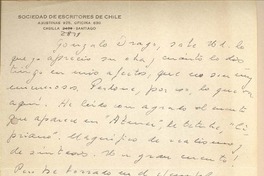 SOCIEDAD DE ESCRITORES DE CHILE
AGUSTINAS 925, OFICINA
CASILLA SANTIAGO
Gonzalo Drago, sabe Ud. lo
que aprecio su obra, cuánto lo dis
tingo en mis afectos, que no son
numerosos. Perdone, por eso, lo que va
aquí. He leído con agrado el cuento
que aparece en "Atenea", de título, "Ci
priano". Magnífico de realismo y
de síntesis. Es un gran cuento!
Pero he